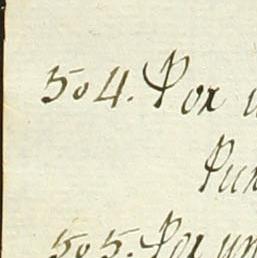 504. Por u
Pun
505. Por un